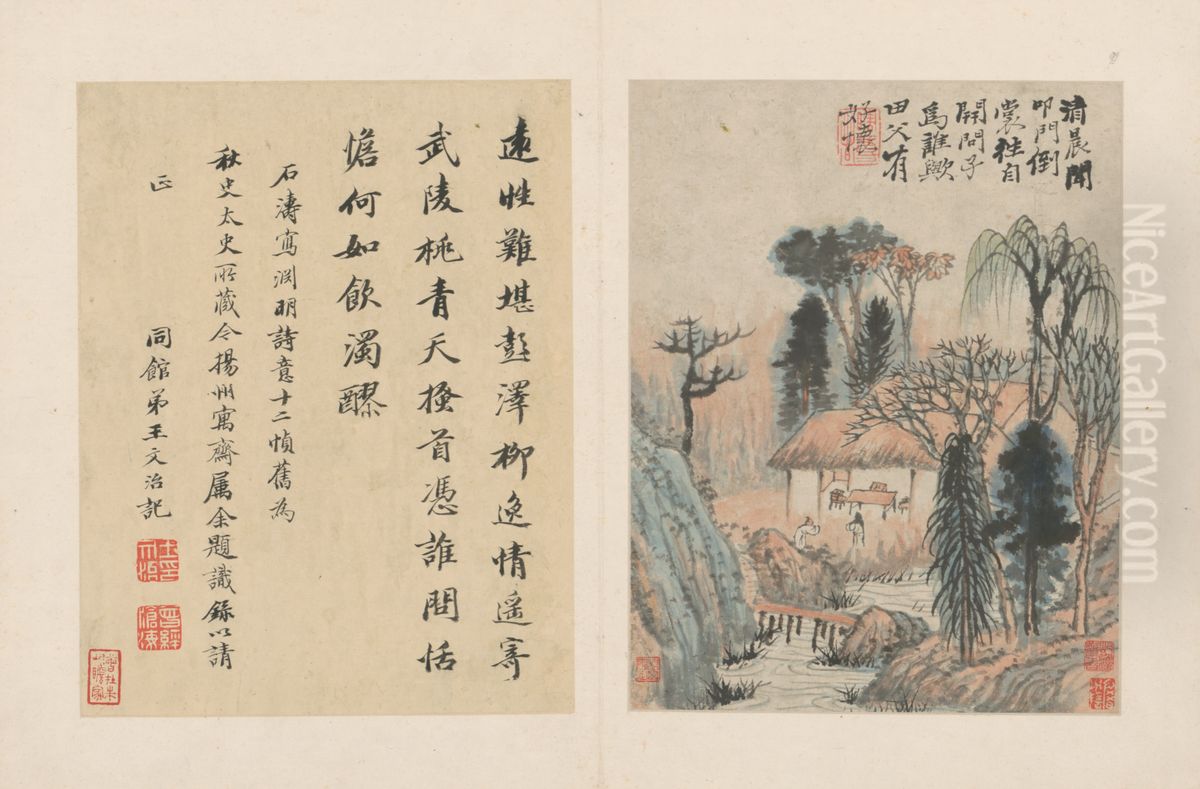 清晨聞
叩門倒
裳往自
開問子
為誰歟
田父有
好懷
遠性難堪彭澤柳逸情遥寄
武陵桃青天搔首憑誰問恬
憺何如飲濁醪
石濤寫淵明詩意十二幀舊為
秋史太史所藏今揚州寓齋属余題識錄以請
正
同館弟王文治記
NiceArtGallery.com